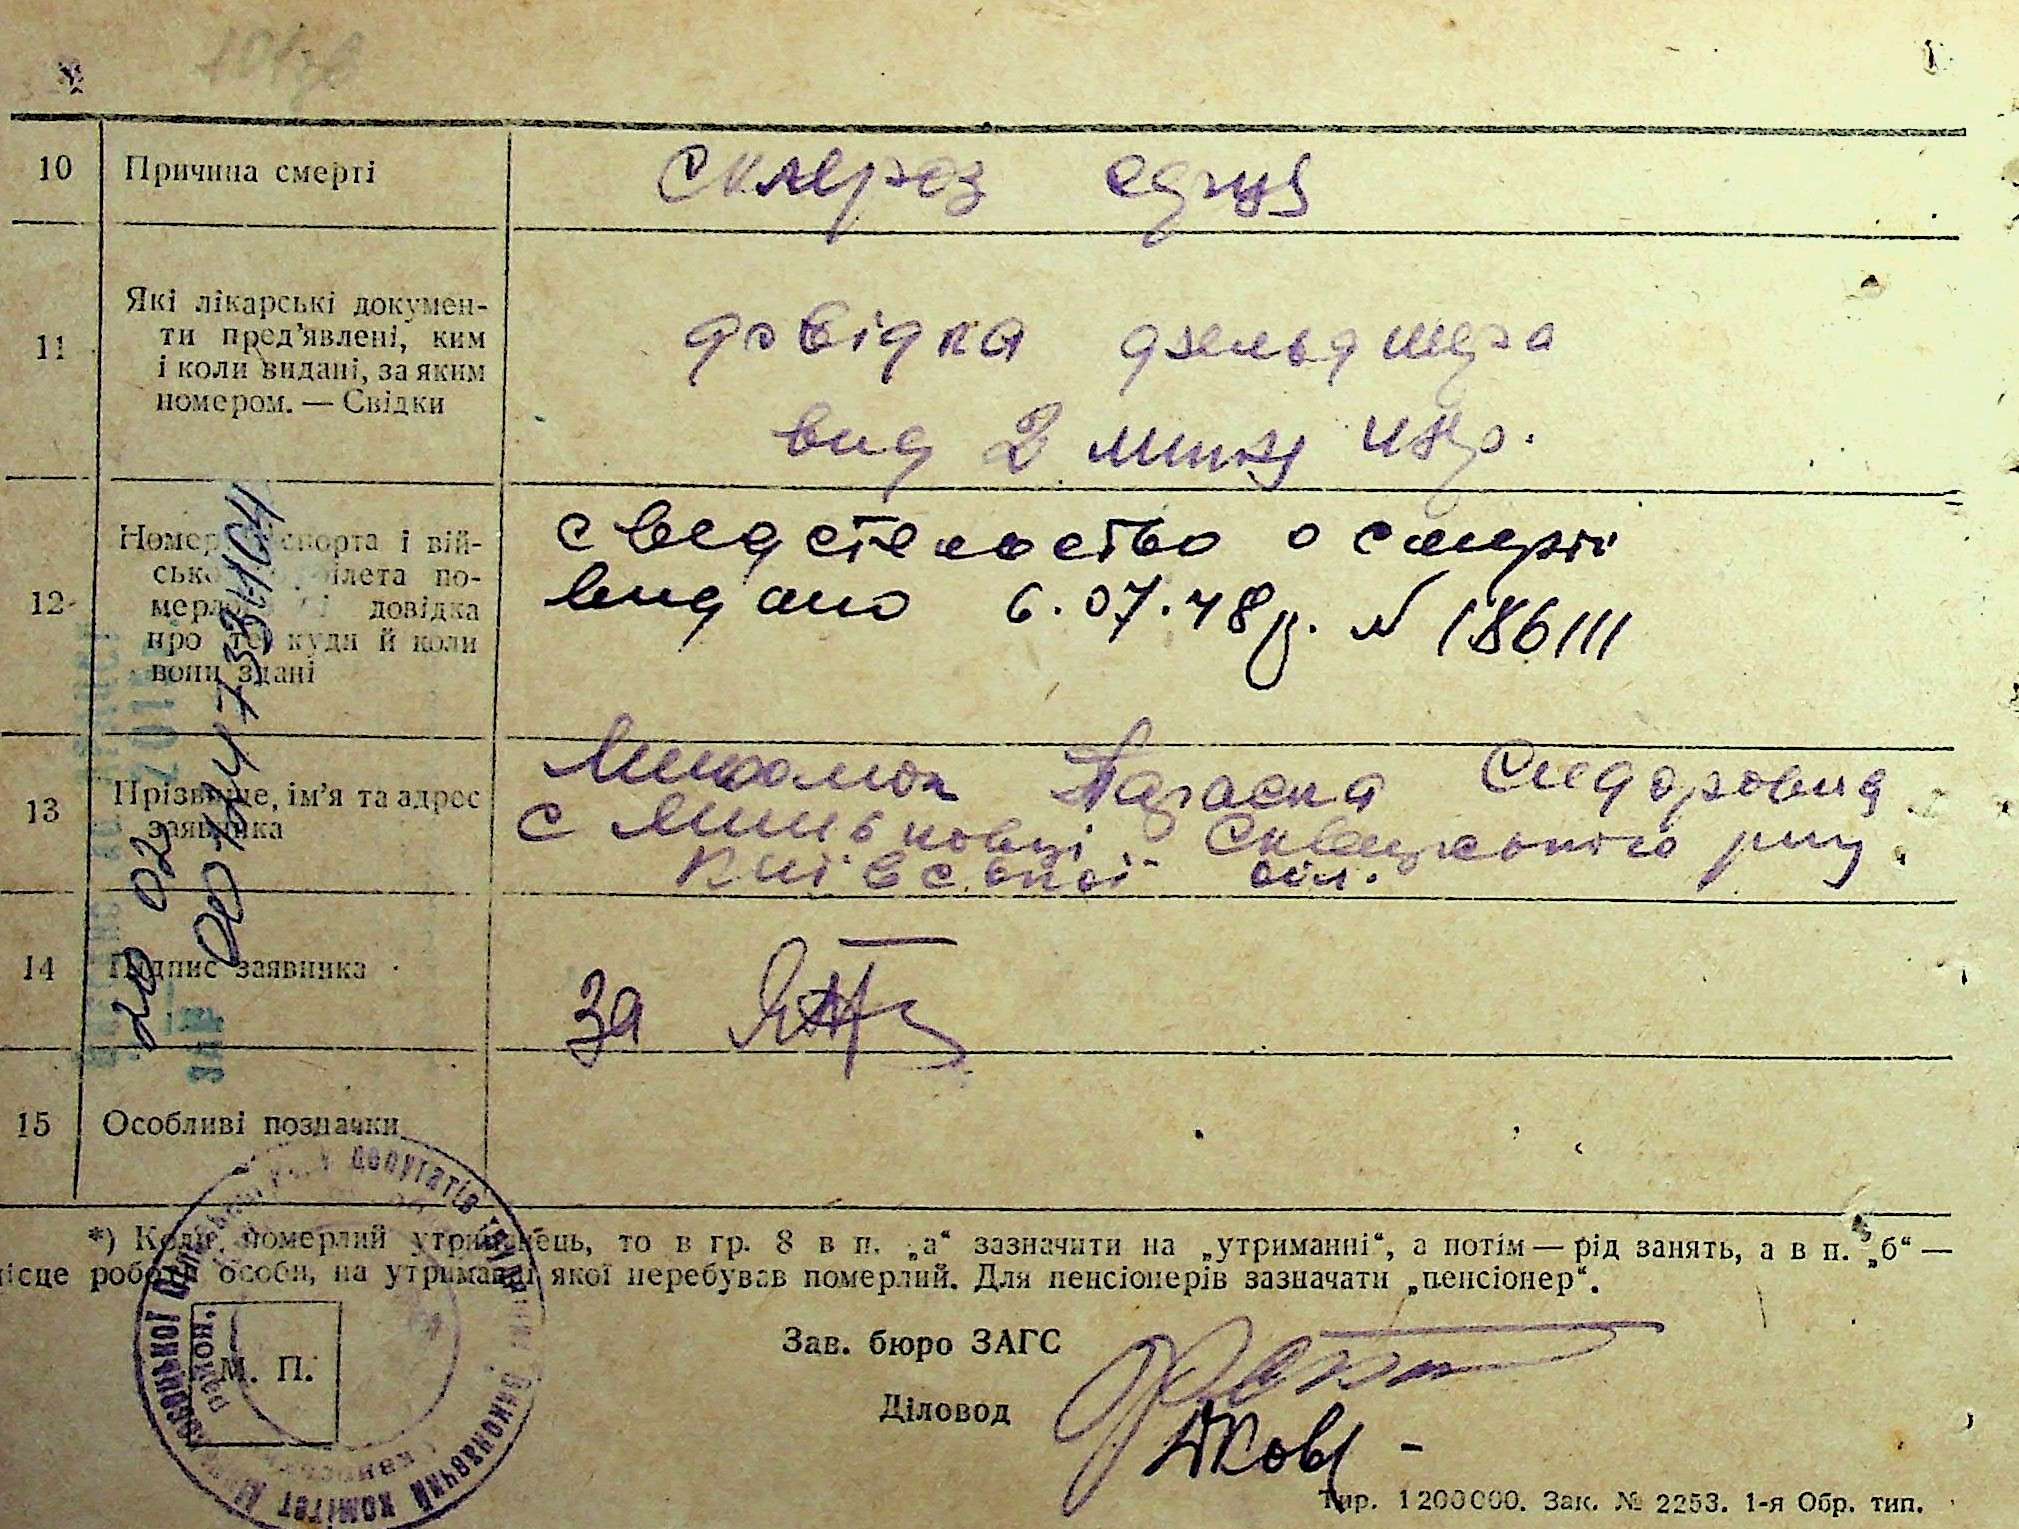 10 Причина смерті
склероз серця
11 Які лікарські докумен-
ти пред'явлені, ким
і коли видані, за яким
номером. — Свідки
довідка фельдшера
вид 2 липня 48 р.
12 Номер паспорта і вій-
ськового білета по-
мерлого і довідка
про те, куди й коли
вони здані
сведетельство о смерті
видано 6.07.48 р. № 186111
13 Прізвище, ім'я та адрес
заявника
Параска Сидоровна
с Миньковці Сквирського р-ну.
Київської обл.
14 Підпис заявника
За
15 Особливі позначки
*) Коли померлий утриманець, то в гр. 8 в п. „а“ зазначити на „утриманні“, а потім — рід занять, а в п. „б“ —
місце роботи особи, на утриманні якої перебував померлий. Для пенсіонерів зазначати „пенсіонер“.
М. П.
Зав. бюро ЗАГС
Діловод
депутатів трудящих
виконавчий комітет
Тир. 1200000. Зак. № 2253. 1-я Обр. тип.